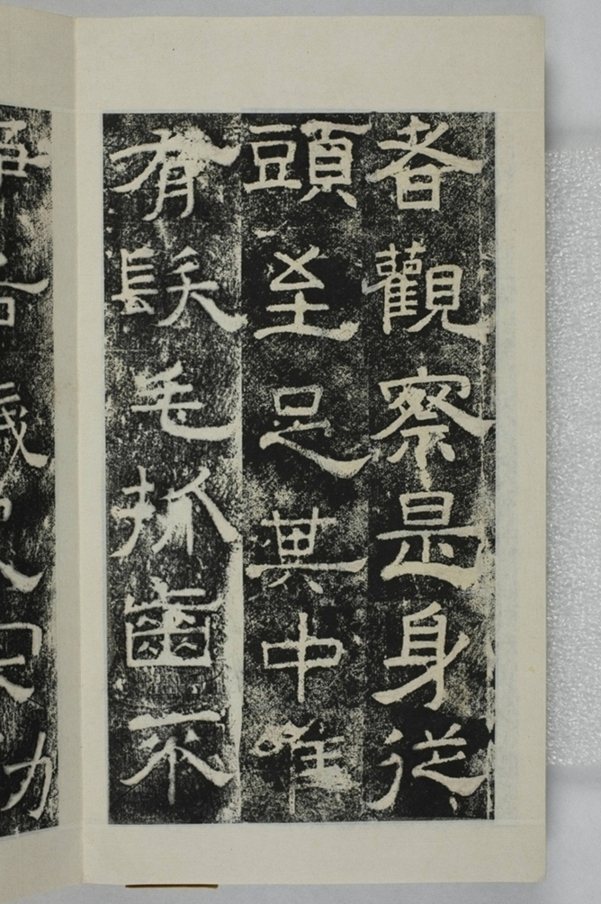 者觀察是身従
頭至足其中唯
有髮毛抓齒不